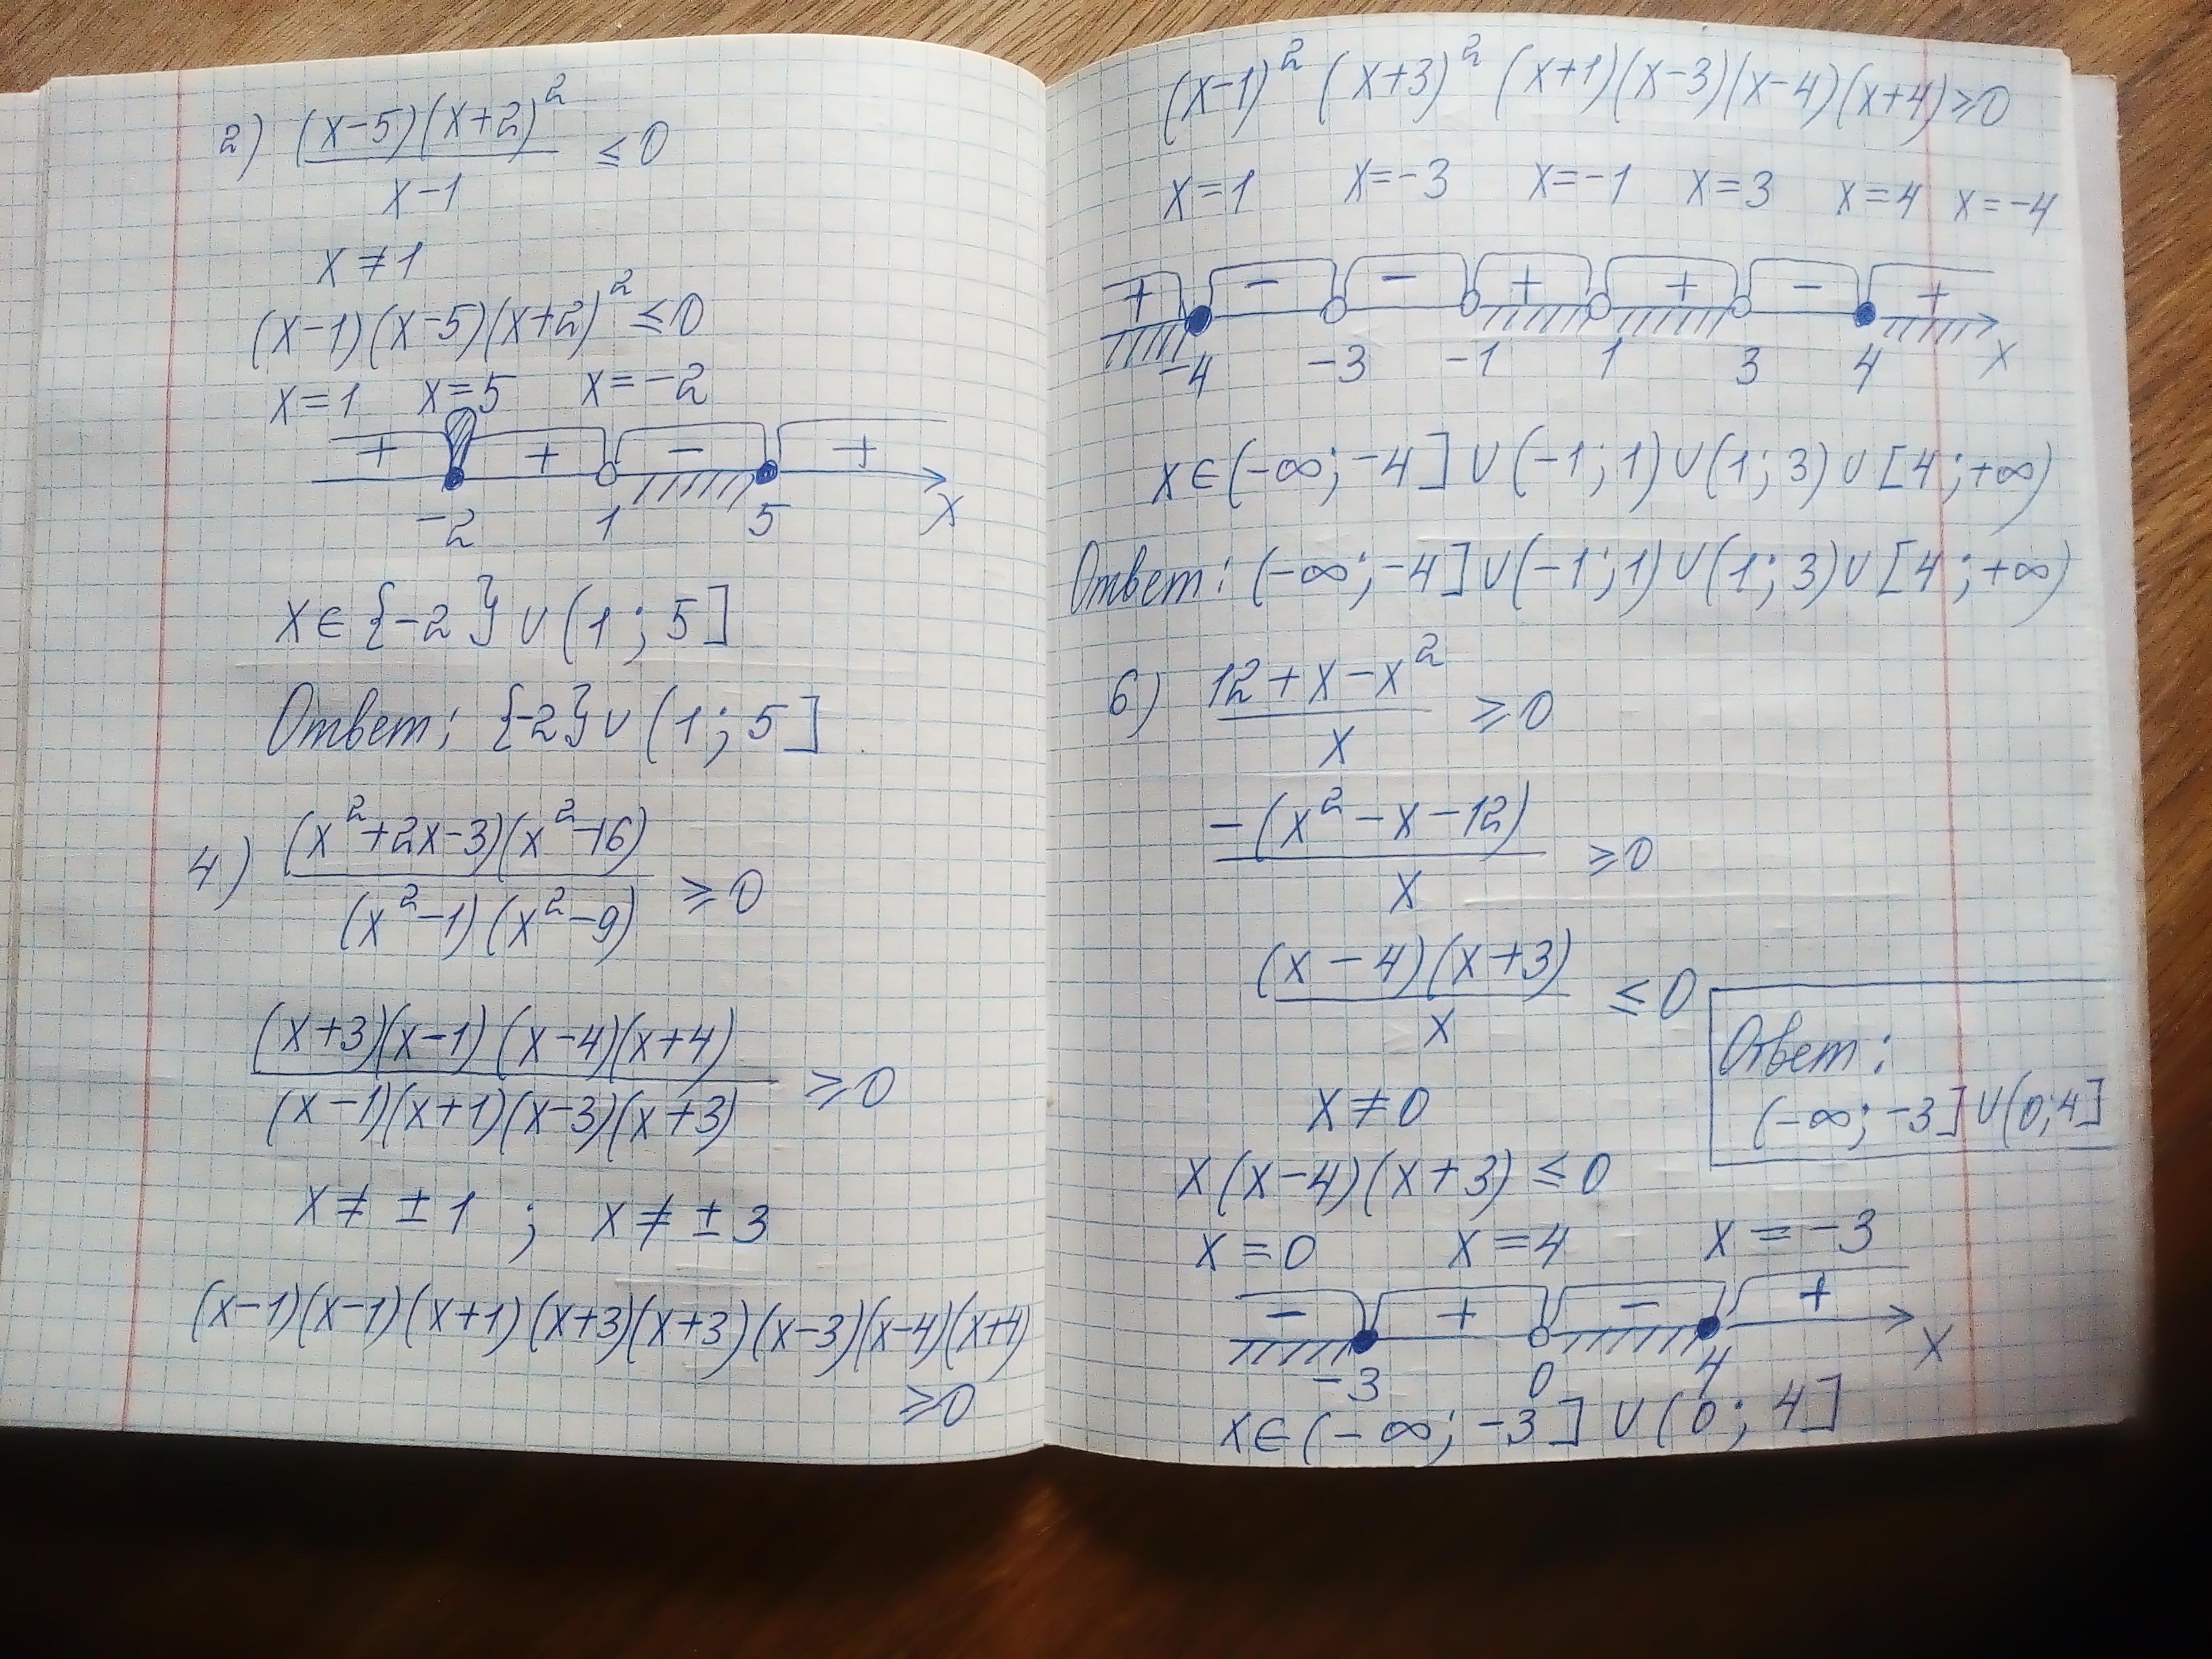 2) (x-5)(x+2)² / x-1 ≤ 0
x ≠ 1
(x-1)(x-5)(x+2)² ≤ 0
x=1 x=5 x=-2
+ + - +
-2 1 5 x
x ∈ {-2} ∪ (1; 5]
Ответ: {-2} ∪ (1; 5]
4) (x²+2x-3)(x²-16) / (x²-1)(x²-9) ≥ 0
(x+3)(x-1)(x-4)(x+4) / (x-1)(x+1)(x-3)(x+3) ≥ 0
x ≠ ±1 ; x ≠ ±3
(x-1)(x-1)(x+1)(x+3)(x+3)(x-3)(x-4)(x+4)
≥ 0
(x-1)² (x+3)² (x+1)(x-3)(x-4)(x+4) ≥ 0
x=1 x=-3 x=-1 x=3 x=4 x=-4
+ - - + + - +
-4 -3 -1 1 3 4 x
x ∈ (-∞; -4] ∪ (-1; 1) ∪ (1; 3) ∪ [4; +∞)
Ответ: (-∞; -4] ∪ (-1; 1) ∪ (1; 3) ∪ [4; +∞)
6) 12+x-x² / x ≥ 0
-(x²-x-12) / x ≥ 0
(x-4)(x+3) / x ≤ 0
Ответ:
(-∞; -3] ∪ (0; 4]
x ≠ 0
x(x-4)(x+3) ≤ 0
x=0 x=4 x=-3
- + - +
-3 0 4 x
x ∈ (-∞; -3] ∪ (0; 4]